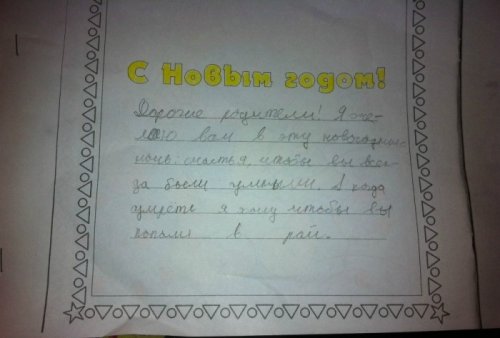 С Новым годом!
Дорогие родители! Я же-
лаю вам в эту новогоднюю
ночь: счастья, чтобы вы все-
да были умными. А када
умрёте я хочу чтобы вы
попали в рай.